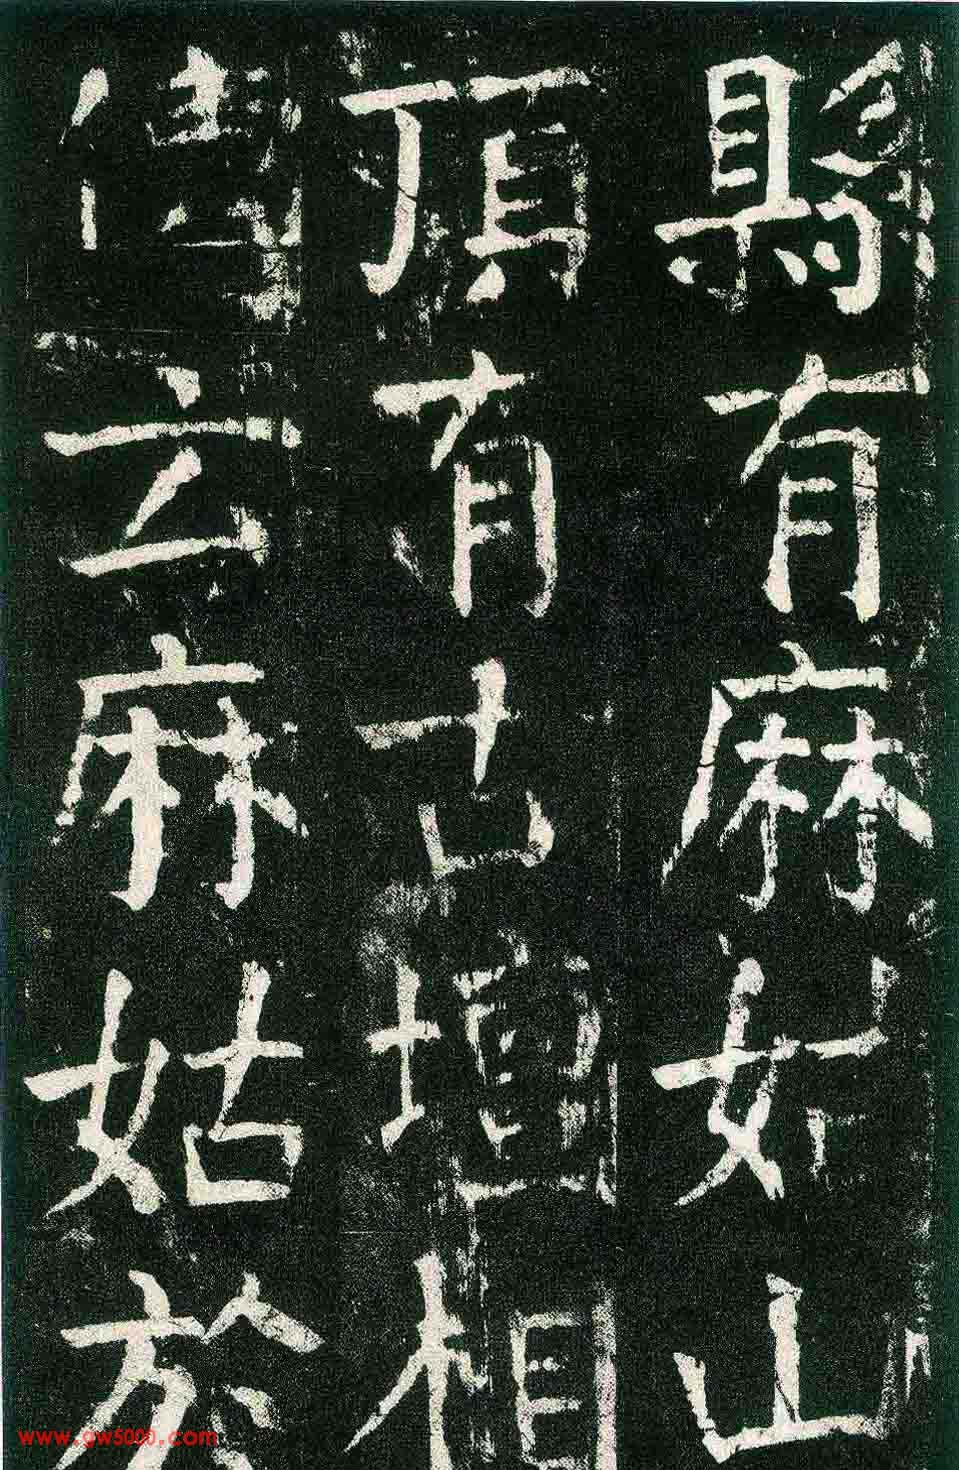 縣有麻姑山
頂有古壇相
傳云麻姑於
www.gw5000.com